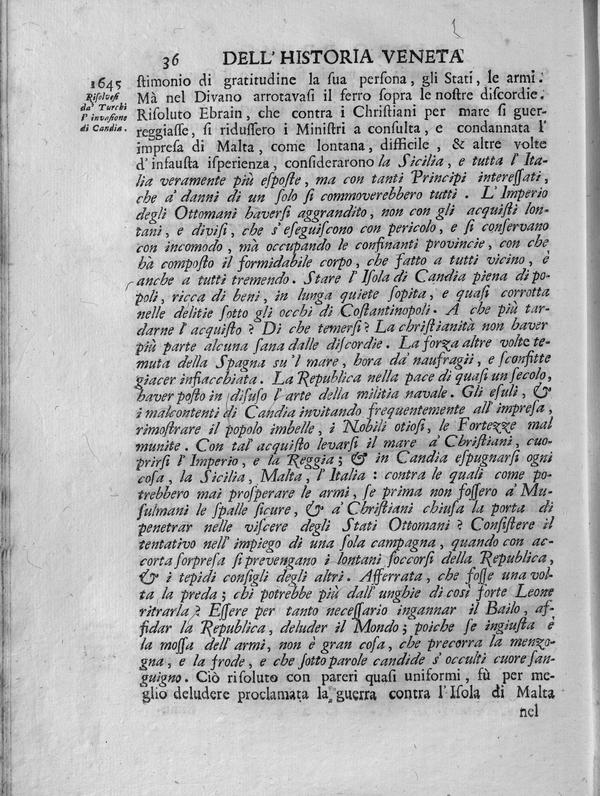 36 DELL'HISTORIA VENETA
1645
Risolvesi
da' Turchi
l'invasione
di Candia.
stimonio di gratitudine la sua persona, gli Stati, le armi.
Mà nel Divano arrotavasi il ferro sopra le nostre discordie.
Risoluto Ebrain, che contra i Christiani per mare si guer-
reggiasse, si ridussero i Ministri a consulta, e condannata l'
impresa di Malta, come lontana, difficile, & altre volte
d'infausta isperienza, considerarono la Sicilia, e tutta l'Ita-
lia veramente più esposte, ma con tanti Principi interessati,
che a' danni di un solo si commoverebbero tutti. L'Imperio
degli Ottomani haversi aggrandito, non con gli acquisti lon-
tani, e divisi, che s'eseguiscono con pericolo, e si conservano
con incomodo, mà occupando le confinanti provincie, con che
hà composto il formidabile corpo, che fatto a tutti vicino, è
anche a tutti tremendo. Stare l'Isola di Candia piena di po-
poli, ricca di beni, in lunga quiete sopita, e quasi corrotta
nelle delitie sotto gli occhi di Costantinopoli. A che più tar-
darne l'acquisto? Di che temersi? La christianità non haver
più parte alcuna sana dalle discordie. La forza altre volte te-
muta della Spagna su'l mare, hora da' naufragii, e sconfitte
giacer infiacchita. La Republica nella pace di quasi un secolo,
haver posto in disuso l'arte della militia navale. Gli esuli, &
i malcontenti di Candia invitando frequentemente all'impresa,
rimostrare il popolo imbelle, i Nobili otiosi, le Fortezze mal
munite. Con tal'acquisto levarsi il mare a' Christiani, cuo-
prirsi l'Imperio, e la Reggia; & in Candia espugnarsi ogni
cosa, la Sicilia, Malta, l'Italia: contra le quali come po-
trebbero mai prosperare le armi, se prima non fossero a' Mu-
sulmani le spalle sicure, & a' Christiani chiusa la porta di
penetrar nelle viscere degli Stati Ottomani? Consistere il
tentativo nell'impiego di una sola campagna, quando con ac-
corta sorpresa si prevengano i lontani soccorsi della Republica,
& i tepidi consigli degli altri. Afferrata, che fosse una vol-
ta la preda; chi potrebbe più dall'unghie di così forte Leone
ritrarla? Essere per tanto necessario ingannar il Bailo, af-
fidar la Republica, deluder il Mondo; poiche se ingiusta è
la mossa dell'armi, non è gran cosa, che precorra la menzo-
gna, e la frode, e che sotto parole candide s'occulti cuore san-
guigno. Ciò risoluto con pareri quasi uniformi, fù per me-
glio deludere proclamata la guerra contra l'Isola di Malta
nel